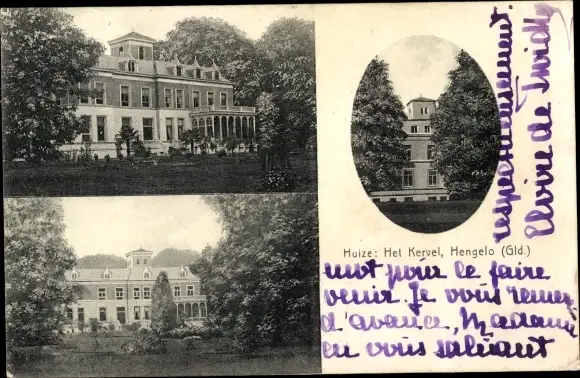 Huize: Het Kervel, Hengelo (Gld.)
mot pour le faire
venir. Je vous remer
d'avance, Madame
en vous saluant
respectueusement.
de